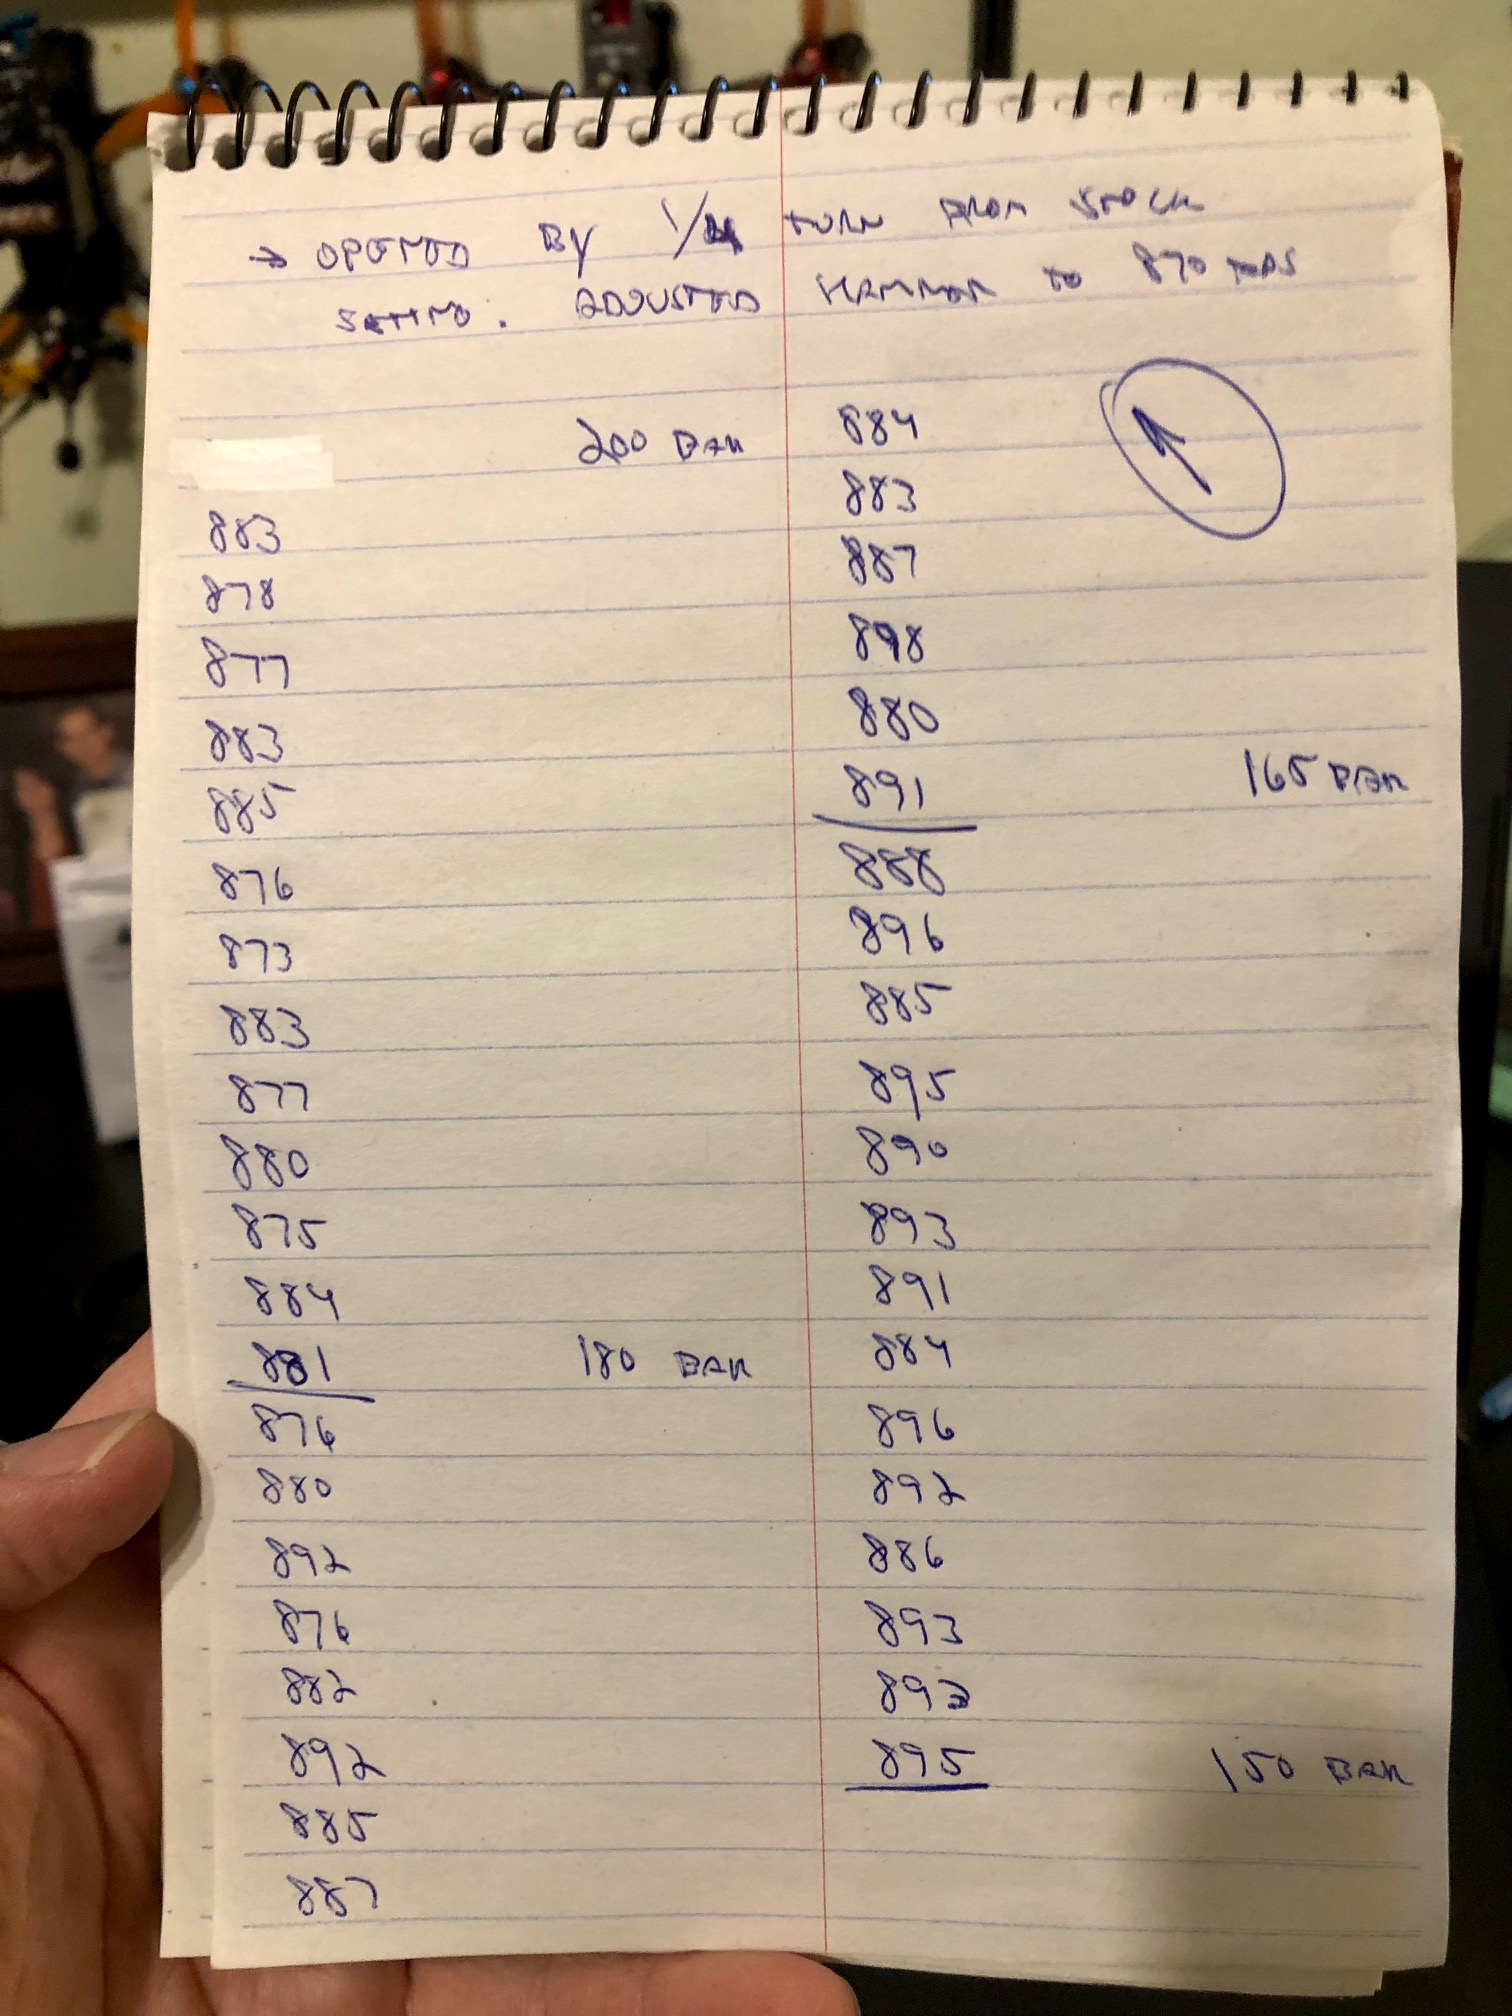 → OPENED BY 1/4 TURN FROM STOCK
SETTING. ADJUSTED HAMMER TO 870
200 BAR
883
878
877
883
885
876
873
883
877
880
875
884
881 180 BAR
876
880
892
876
882
892
885
887
884
883
887
898
880
891 165 BAR
888
896
885
895
890
893
891
884
896
892
886
893
893
895 150 BAR